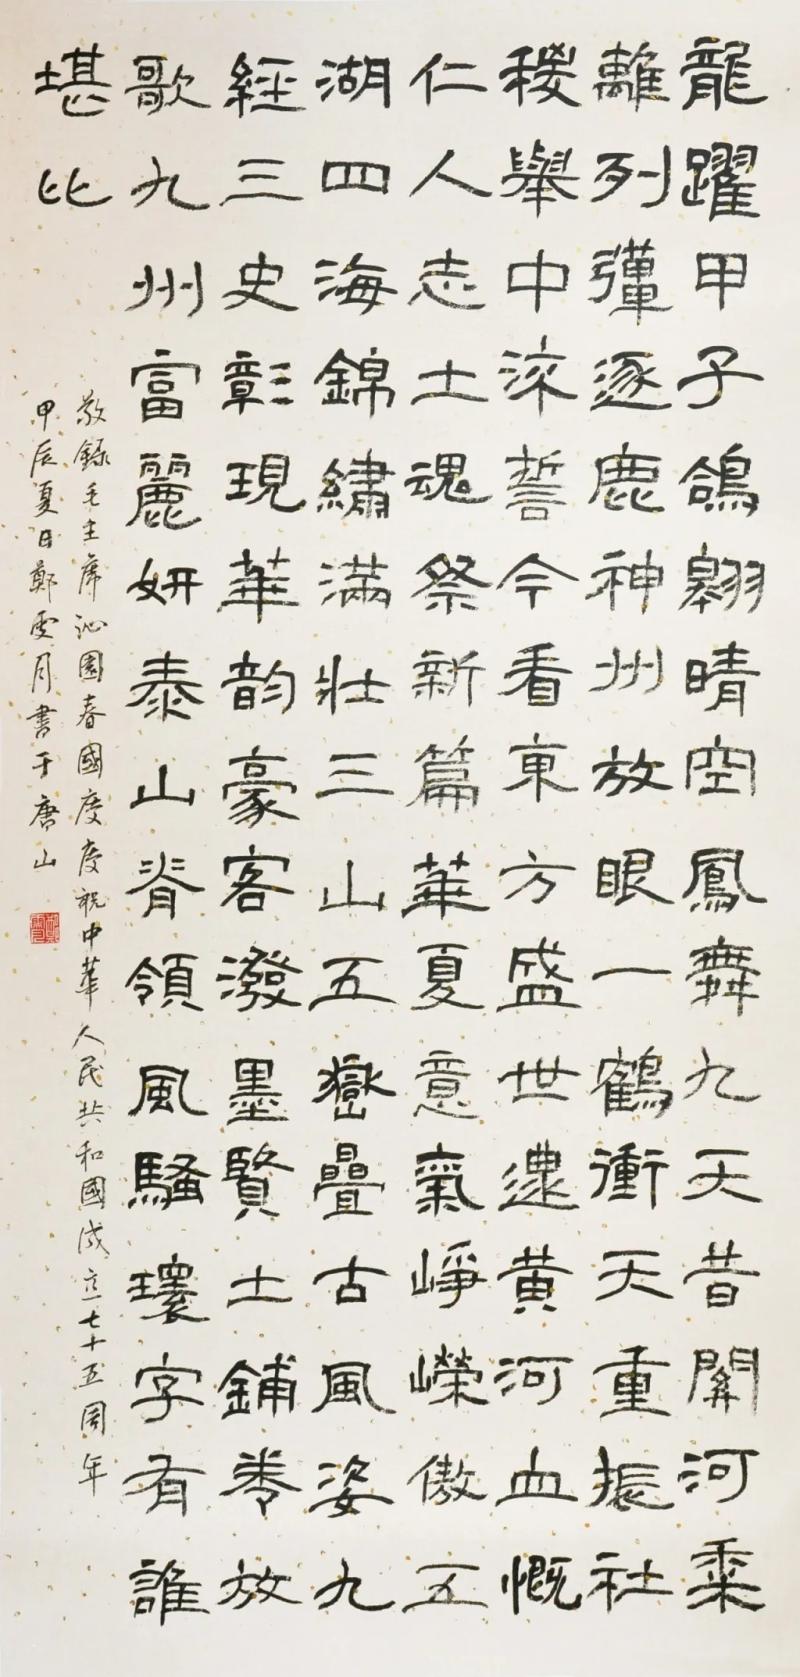 龍躍甲子鴿翱晴空鳳舞九天昔關河黍
離列彈逐鹿神州放眼一鶴衝天重振社
稷舉中流誓今看東方盛世還黃河血慨
仁人志士魂祭新篇華夏意氣崢嶸傲五
湖四海錦繡滿壯三山五嶽疊古風姿九
經三史彰現華韵豪客潑墨賢士鋪卷放
歌九州富麗妍泰山脊領風騷環字有誰
堪比
敬錄毛主席沁園春國慶慶祝中華人民共和國成立七十五周年
甲辰夏日鄭雲月書于唐山